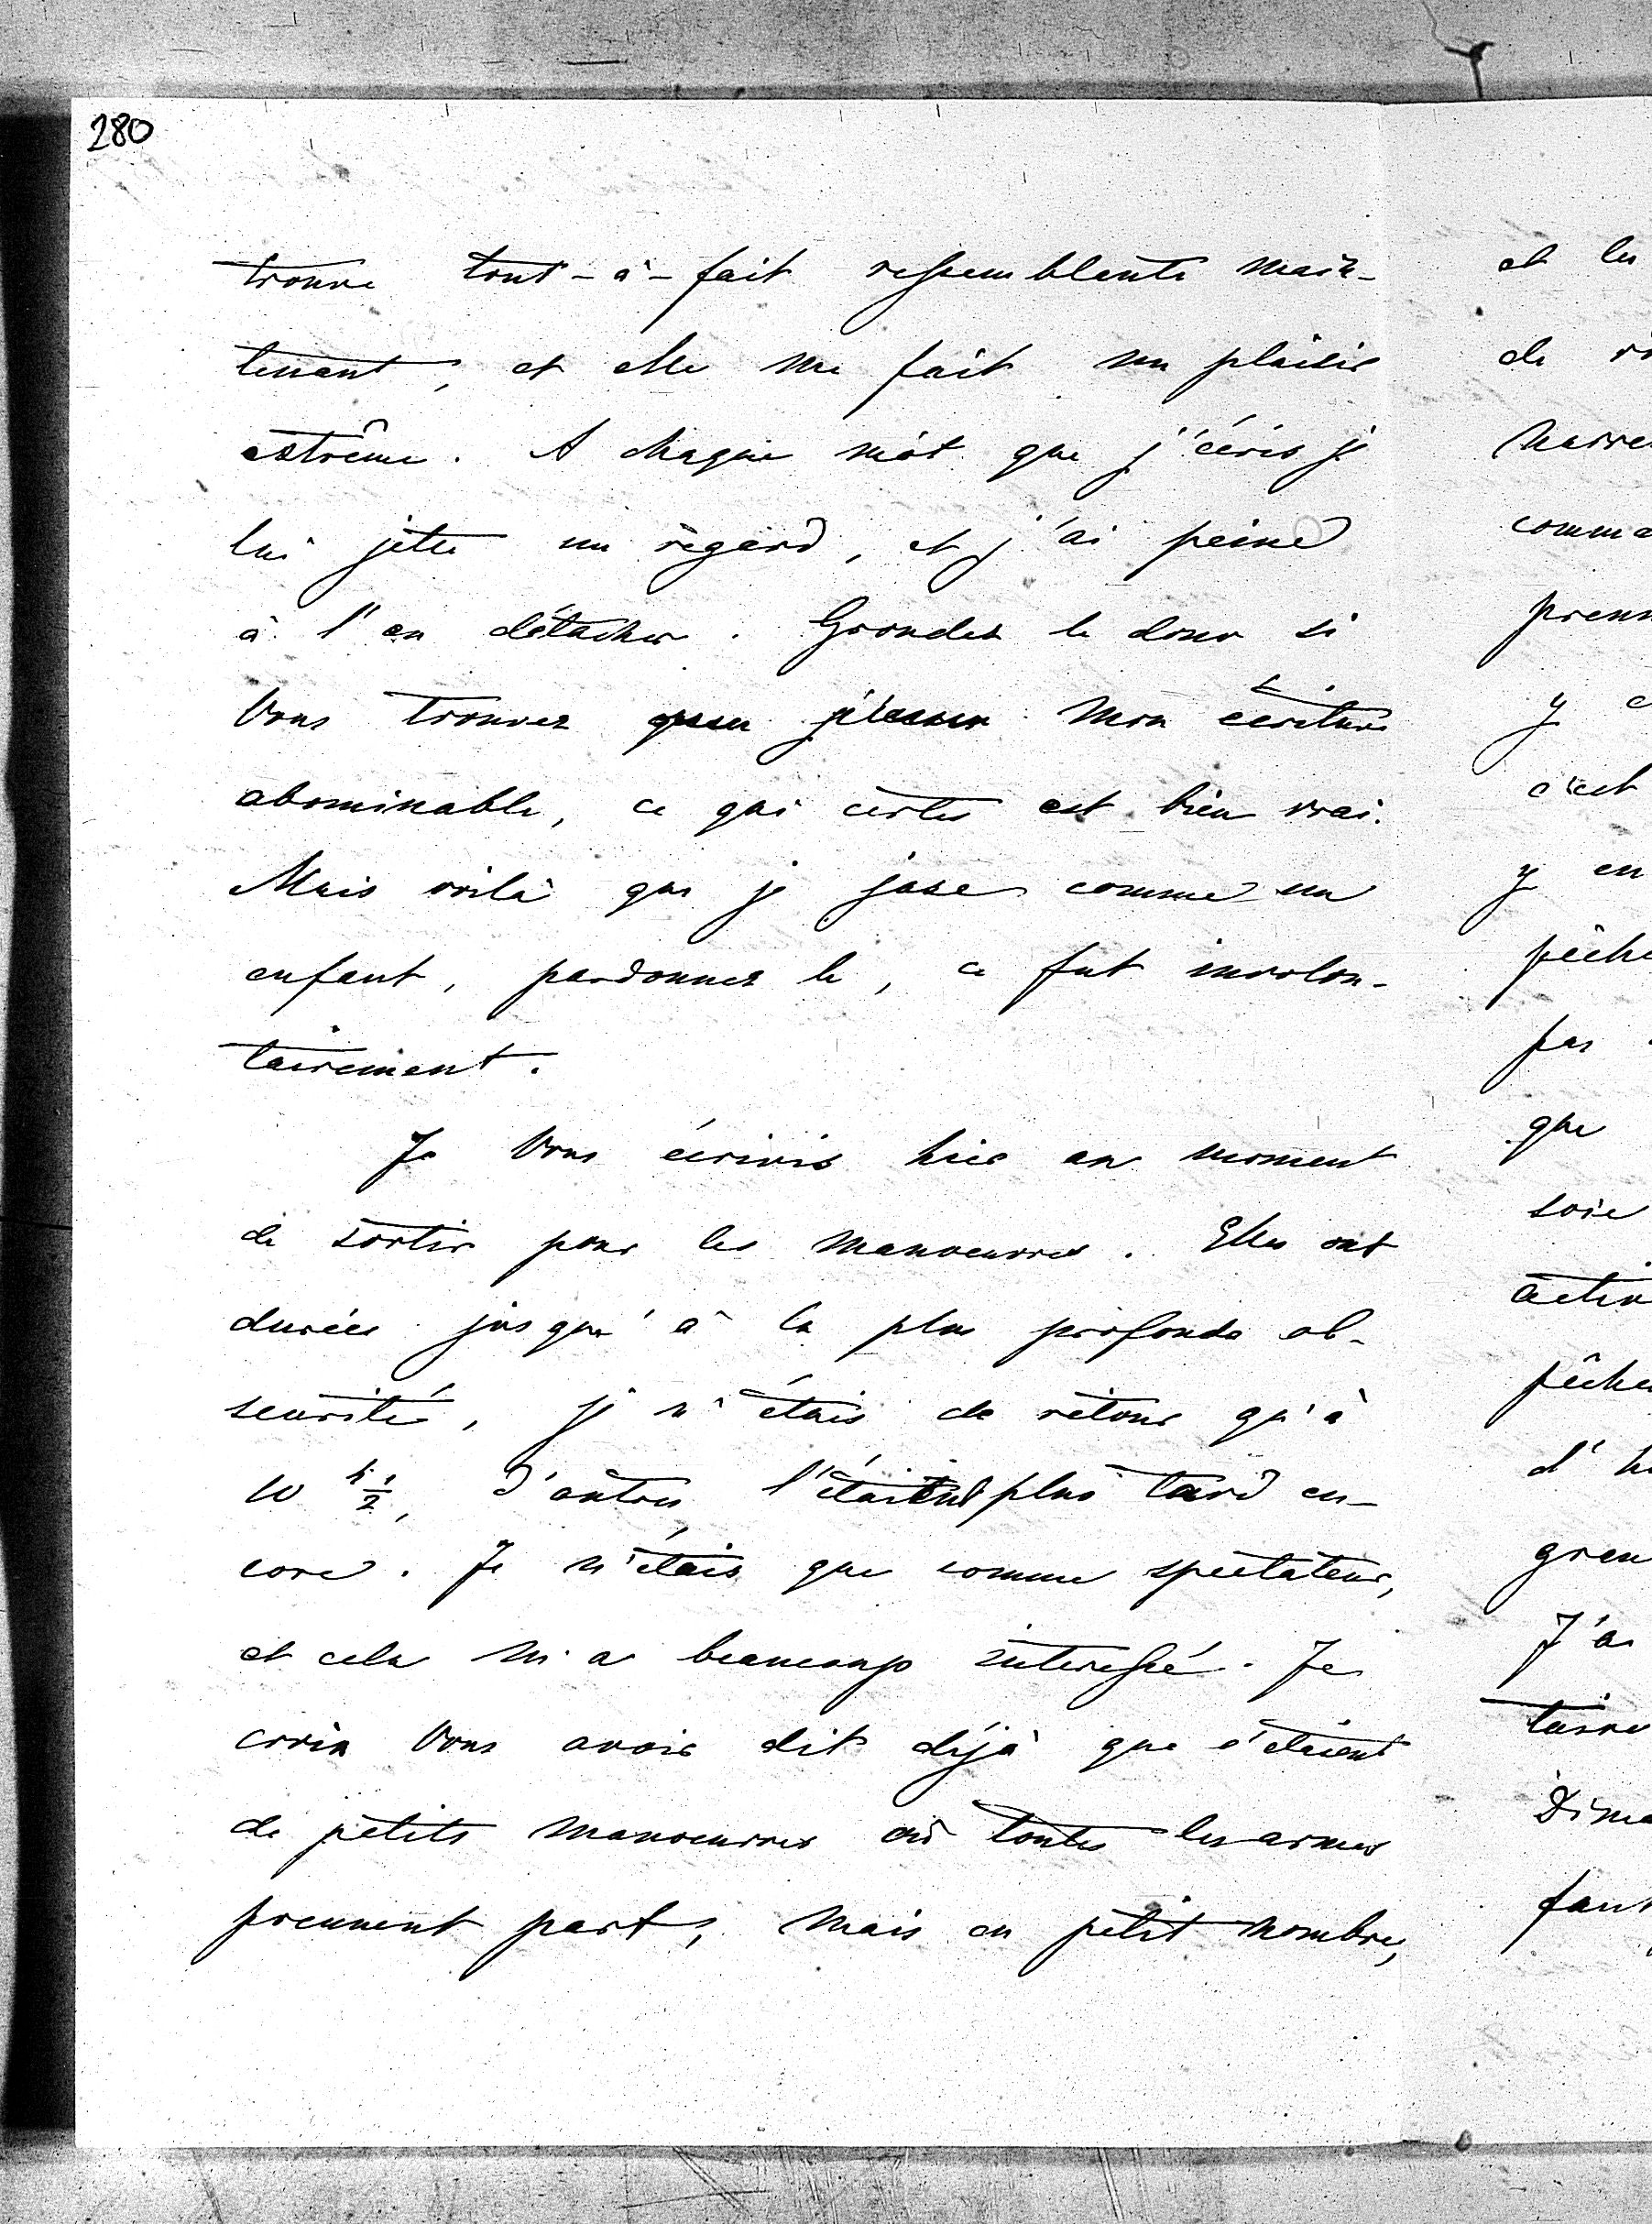 280
trouve tout-à-fait ressemblante main-
tenant, et elle me fait un plaisir
extrême. A chaque mot que j'écris je
lui jette un regard, et j'ai peine
à l'en détacher. Grondez le donc si
Vous trouvez mon écriture
abominable, ce qui certes est bien vrai.
Mais voilà que je jase comme un
enfant, pardonnez le, ce fut involon-
tairement.
Je Vous écrivis hier au moment
de sortir pour les manoeuvres. Elles ont
durées jusqu'à la plus profonde ob-
scurité, je n'étais de retour qu'à
10 h ½, d'autres l'étaient plus tard en-
core. Je n'étais que comme spectateur,
et cela m'a beaucoup interessé. Je
crois Vous avoir dit déjà que c'étaient
de petits manoeuvres où toutes les armes
prennent part, mais en petit nombre,
et les
de
comma
prenn
y
c'est
y en
pêche
pas
que
soie
pêche
d'
J'ai